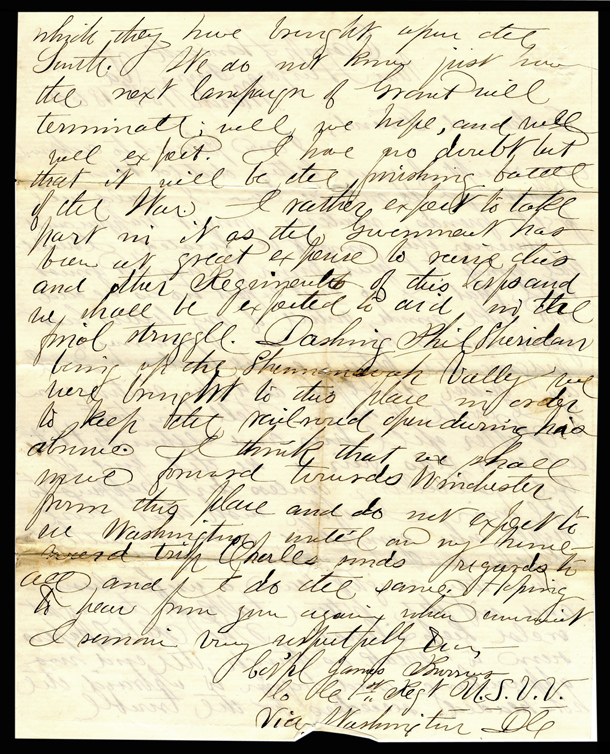 which they have brought upon the
South. We do not know just how
the next Campaign of Grant will
terminate; well we hope, and will
well expect. I have no doubt but
that it will be the finishing battle
of the War. I rather expect to take
part in it as the Government has
been at great expense to raise this
and other Regiments of this Corps and
we shall be expected to aid in the
final struggle. Dashing Phil Sheridan
being up the Shennandoah Valley we
were brought to this place in order
to keep the railroad open during his
absence. I think that we shall
move forward towards Winchester
from this place and do not expect to
see Washington until on my home
ward trip. Charles sends regards to
all and I do the same. Hoping
to hear from you again when convenient
I remain very respectfully
Corp'l James
Co 1st Regt U.S.V.V.
Via Washington D.C.